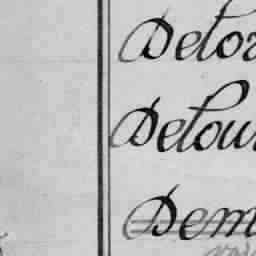 Delor
Delour
Dem